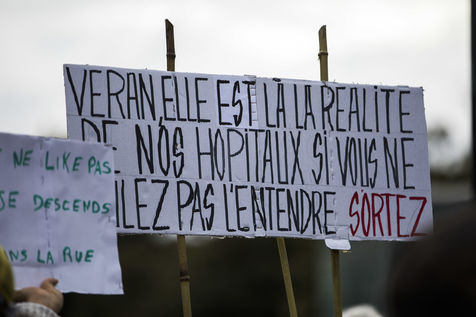 VERAN ELLE EST LÀ LA REALITE
DE NÓS HOPITAUX SI VOUS NE
LEZ PAS L'ENTENDRE SORTEZ
NE LIKE PAS
JE DESCENDS
NS LA RUE